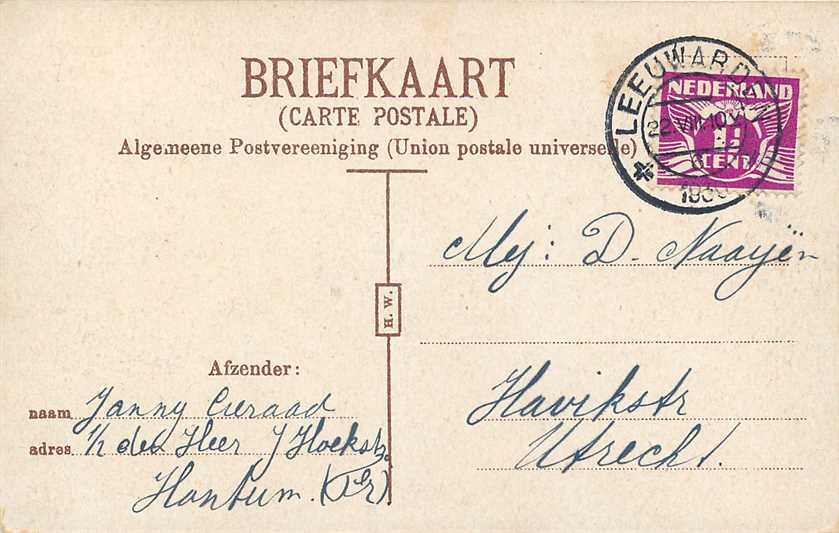 BRIEFKAART
(CARTE POSTALE)
Algemeene Postvereeniging (Union postale universelle)
LEEUWARDEN
22.VIII.10V
1930
NEDERLAND
CENT
Mej: D. Naayën
H. W.
Havikstr
Utrecht.
Afzender:
naam Janny Cieraad
adres. 1/2 den Heer J Hoekstra
Hantum. (Fr)